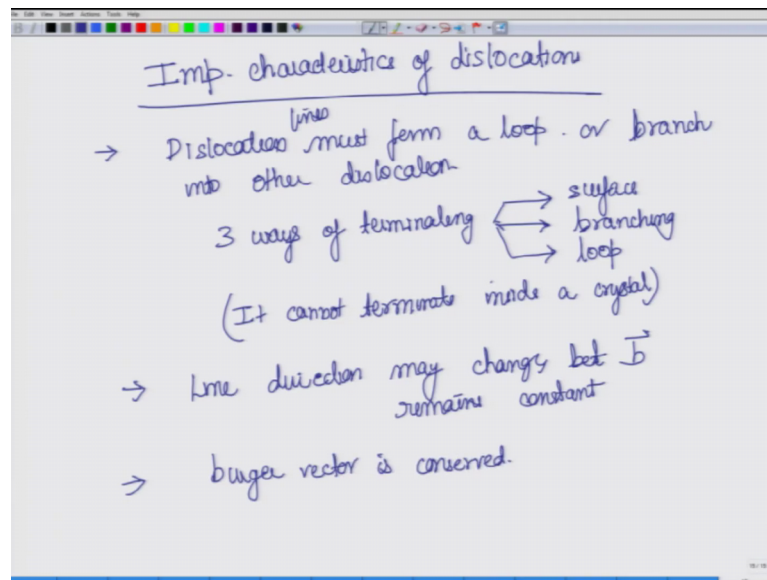 Imp. characteristics of dislocation
→ Dislocation lines must form a loop. or branch
into other dislocation
3 ways of terminating → surface
→ branching
→ loop
(It cannot terminate inside a crystal)
→ Line direction may change but b⃗
remains constant
→ burger vector is conserved.